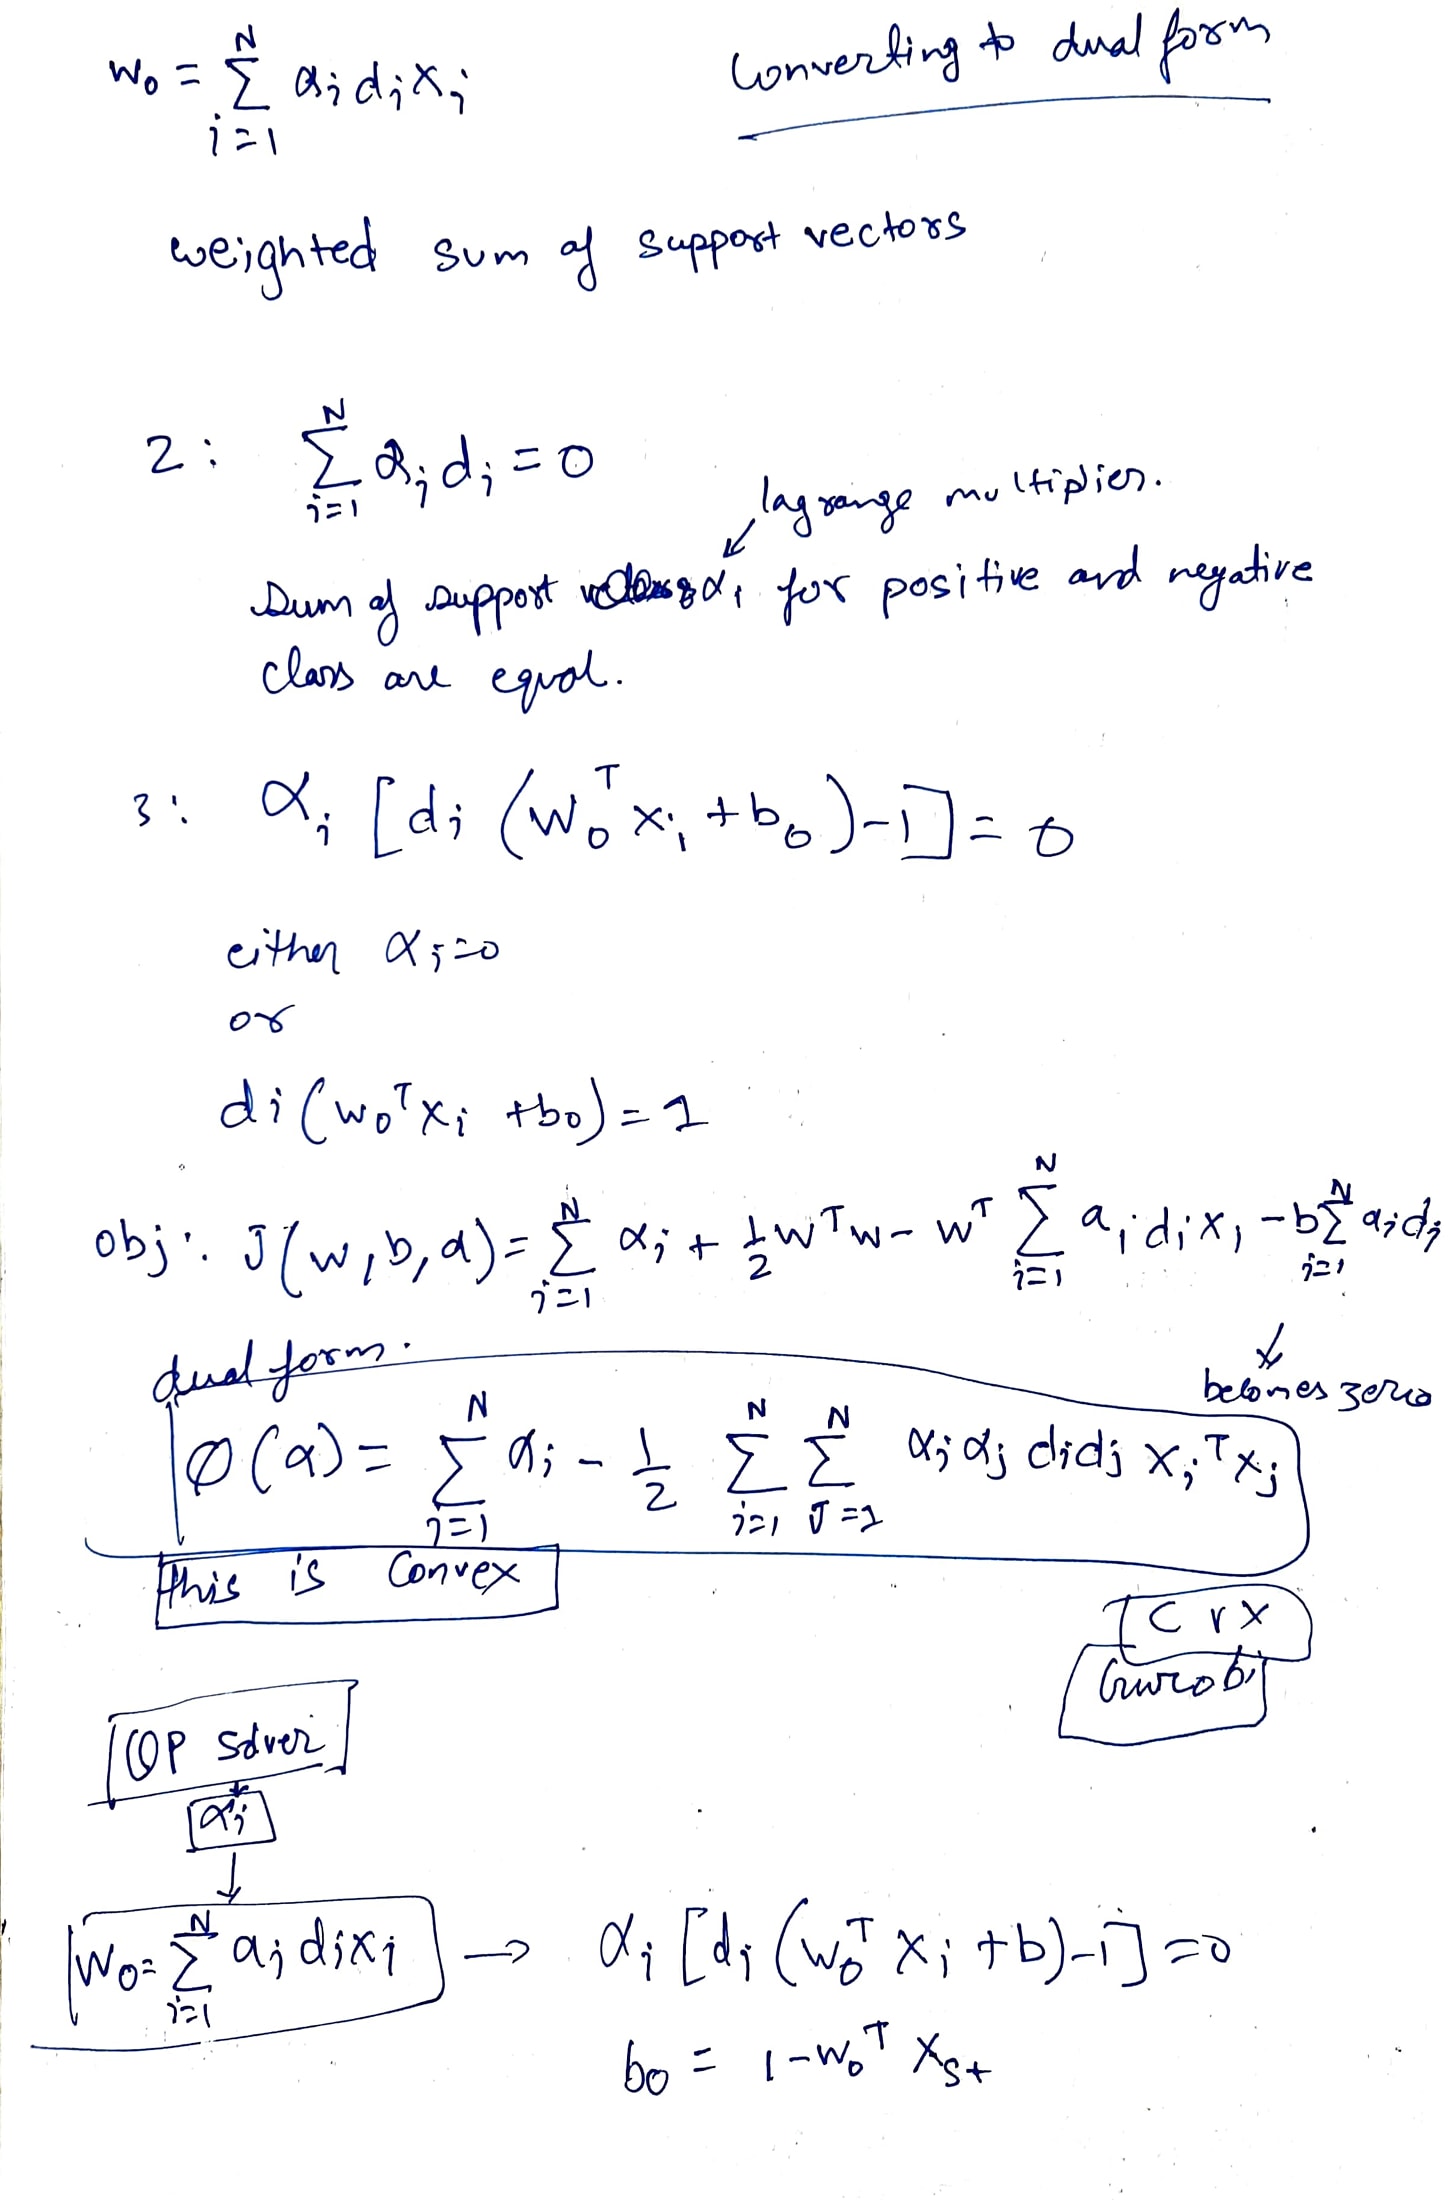 w₀ = Σ_{i=1}^{N} αᵢ dᵢ xᵢ
Converting to dual form
weighted sum of support vectors
2: Σ_{i=1}^{N} αᵢ dᵢ = 0
lagrange multiplier.
Sum of support αᵢ for positive and negative
class are equal.
3: αᵢ [dᵢ (w₀ᵀ xᵢ + b₀) - 1] = 0
either αᵢ = 0
or
dᵢ (w₀ᵀ xᵢ + b₀) = 1
obj: J(w, b, α) = Σ_{i=1}^{N} αᵢ + 1/2 wᵀw - wᵀ Σ_{i=1}^{N} aᵢ dᵢ xᵢ - b Σ_{i=1}^{N} aᵢ dᵢ
becomes zero
dual form.
Ø(α) = Σ_{i=1}^{N} αᵢ - 1/2 Σ_{i=1}^{N} Σ_{J=1}^{N} αᵢ αⱼ dᵢ dⱼ xᵢᵀ xⱼ
This is Convex
C v X
Gurobi
QP solver
αᵢ
w₀ = Σ_{i=1}^{N} aᵢ dᵢ xᵢ → αᵢ [dᵢ (w₀ᵀ xᵢ + b) - 1] = 0
b₀ = 1 - w₀ᵀ x_{s+}